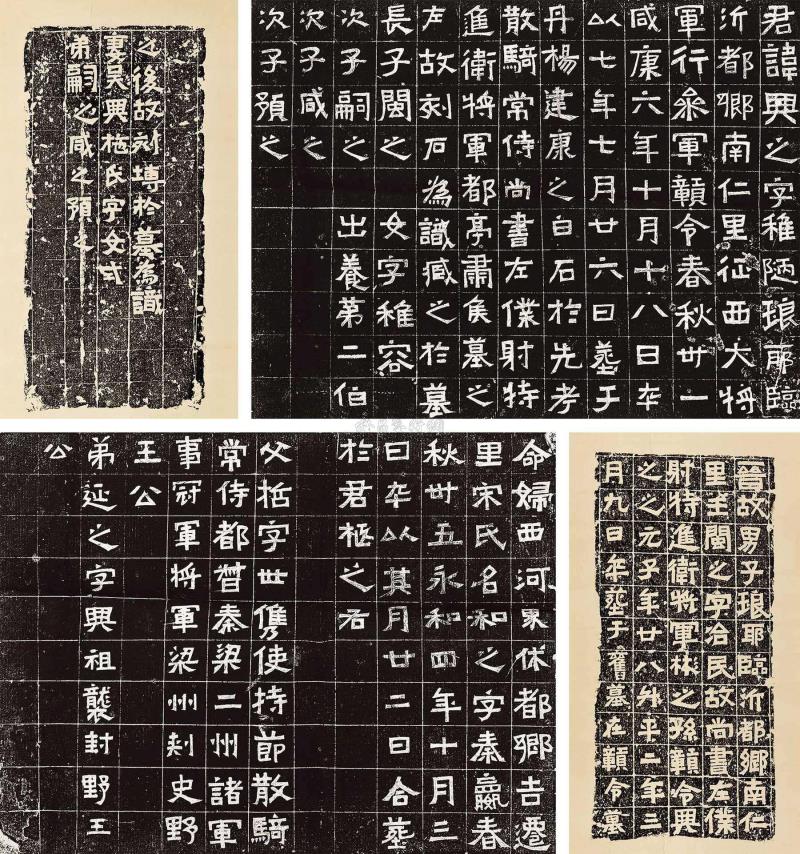 君諱興之字稚陋琅耶臨
沂都鄉南仁里征西大將
軍行參軍贛令春秋卅一
咸康六年十月十八日卒
以七年七月廿六日葬于
丹楊建康之白石於先考
散騎常侍尚書左僕射特
進衛將軍都亭肅侯墓之
左故刻石為識臧之於墓
長子閩之 女字稚容
次子嗣之 出養第二伯
次子咸之
次子預之
之後故刻塼於墓為識
妻吳興施氏字女式
弟嗣之咸之預之
晉故男子琅耶臨沂都鄉南仁
里王閩之字冶民故尚書左僕
射特進衛將軍彬之孫贛令興
之之元子年廿八升平二年三
月九日卒葬于舊墓在贛令墓
命婦西河界休都鄉吉遷
里宋氏名和之字秦嬴春
秋卅五永和四年十月三
日卒以其月廿二日合葬
於君柩之右
父哲字世儁使持節散騎
常侍都督秦梁二州諸軍
事冠軍將軍梁州刺史野
王公
弟延之字興祖襲封野王
公